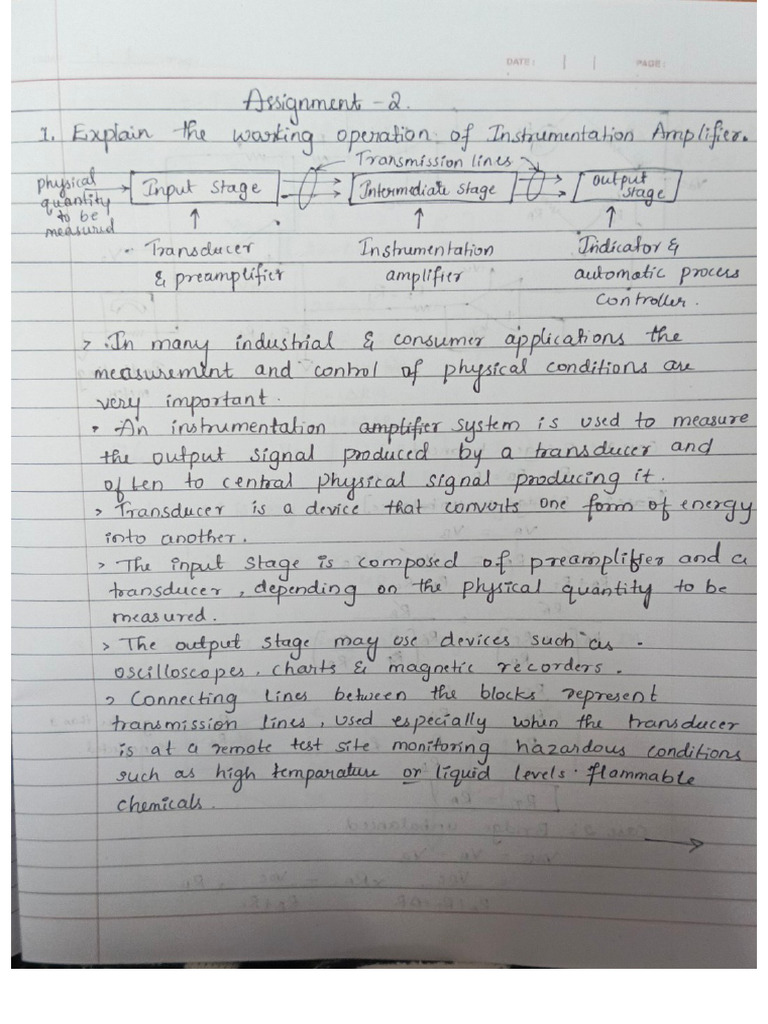 DATE: PAGE:
Assignment - 2.
1. Explain the working operation of Instrumentation Amplifier.
Transmission lines
physical
quantity
to be
measured
Input stage
Intermediate stage
output
stage
Transducer
& preamplifier
Instrumentation
amplifier
Indicator &
automatic process
controller.
> In many industrial & consumer applications the
measurement and control of physical conditions are
very important.
• An instrumentation amplifier system is used to measure
the output signal produced by a transducer and
often to central physical signal producing it.
> Transducer is a device that converts one form of energy
into another.
> The input stage is composed of preamplifier and a
transducer, depending on the physical quantity to be
measured.
> The output stage may use devices such as
oscilloscopes, charts & magnetic recorders.
> Connecting lines between the blocks represent
transmission lines, used especially when the transducer
is at a remote test site monitoring hazardous conditions
such as high temparature or liquid levels. flammable
chemicals.